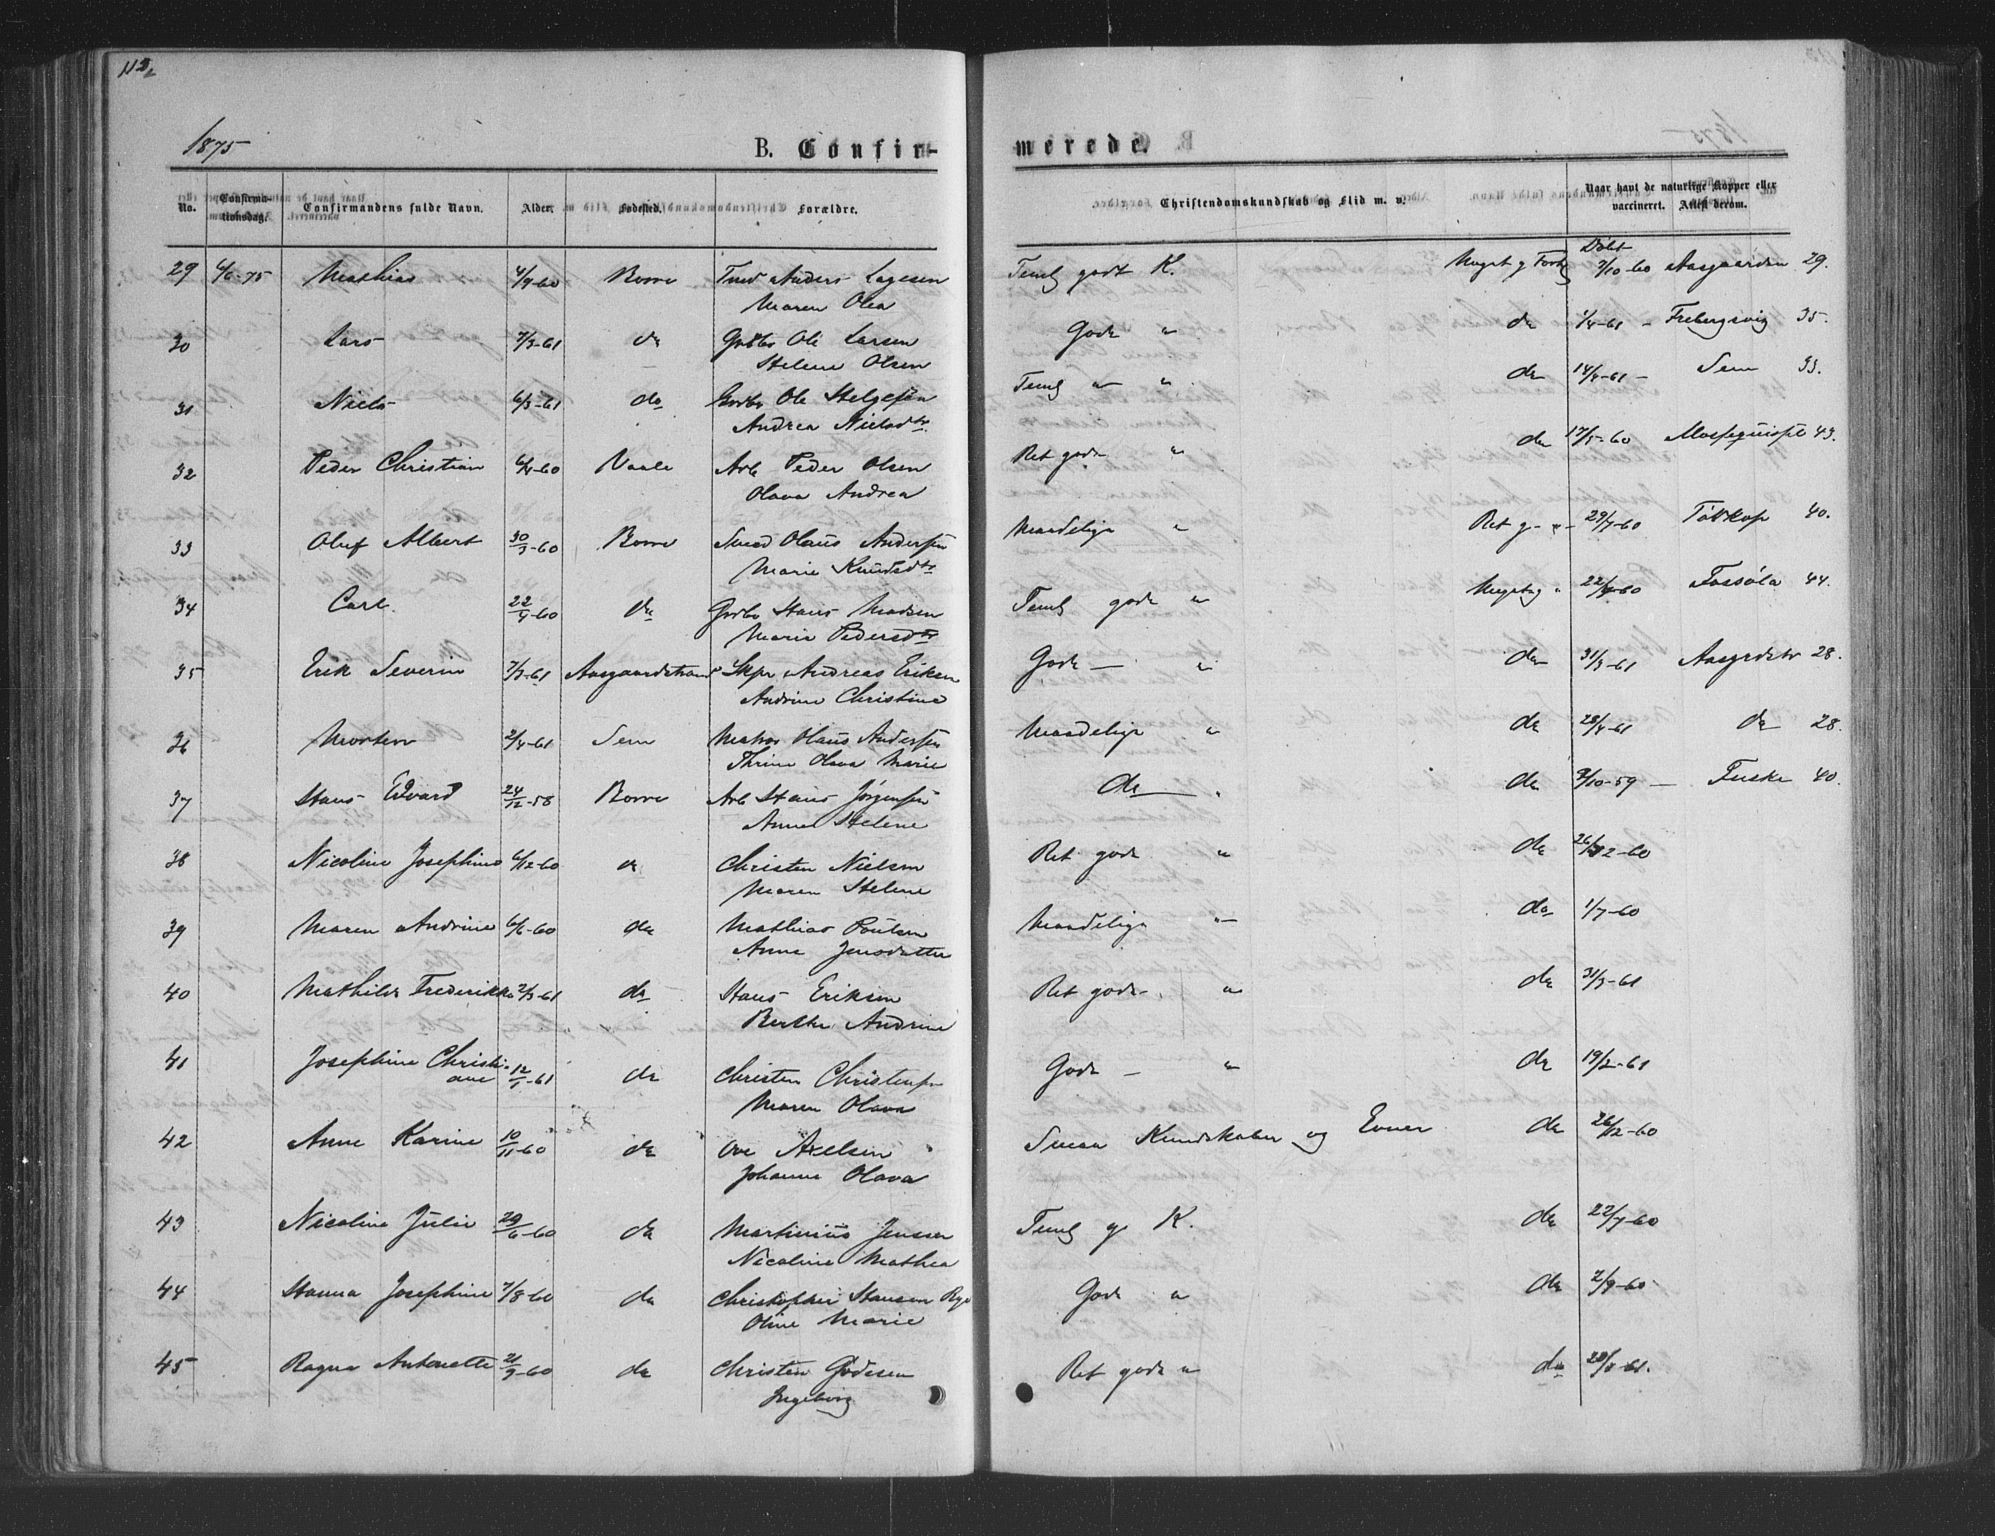 112
1875
B. Confir-
merede.
No.
Confirma-
tionsdag.
Confirmandens fulde Navn.
Alder.
Fødested.
Forældre.
Christendomskundskab og Flid m. v.
Naar havt de naturlige Kopper eller
vaccineret. Attest derom.
Døbt
29 4/6-75 Mathias 4/9-60 Borre Anders Lagesen
Maren Olea
Temlg godt K. Meget g Forh 7/10-60 Aasgaarden 29.
30 Lars 7/3-61 do Grdbr Ole Larsen
Helene Olsen
Gode " do 1/4-61 - Frebergsvig 35.
31 Niels 6/3-61 do Grdbr Ole Helgesen
Andrea Nielsdtr
Temlg " " do 14/4-61 - Sem 33.
32 Peder Christian 6/4-60 Vaale Arb Peder Olsen
Olava Andrea
Ret gode " do 17/5-60 43.
33 Oluf Albert 30/3-60 Borre Smed Olaus Andersen
Marie Knudsdtr
Maadelige " Ret g- " - 29/7-60 40.
34 Carl 22/9-60 do Grdbr Hans Madsen
Marie Pedersdtr
Temlg gode " Meget g " 44.
35 Erik Severin 7/3-61 Aasgaardstrand Skpr Andreas Eriksen
Andrine Christine
Gode - " do 31/3-61 Aasgrdstr 28.
36 Morten 2/4-61 Sem Matros Olaus Andersen
Thrine Olava Marie
Maadelige " do 28/4-61 do 28.
37 Hans Edvard 24/12-58 Borre Arb Hans Jørgensen
Anne Helene
do " do /10-59 - Fuske 40.
38 Nicoline Josephine 6/12-60 do Christen Nielsen
Maren Helene
Ret gode " do 26/12-60
39 Maren Andrine 6/6-60 do Mathias Poulsen
Anne Jensdatter
Maadelige " do 1/7-60
40 Mathilde Frederikke 2/3-61 do Hans Eriksen
Berthe Andrine
Ret gode " do 31/3-61
41 Josephine Christi-
ane 12/1-61 do Christen Christensen
Maren Olava
Gode - " do 19/2-61
42 Anne Karine 10/11-60 do Ove Axelsen
Johanne Olava
Smaa Kundskaber og Evner do 26/12-60
43 Nicoline Julie 29/6-60 do Martinius Jenssen
Nicoline Mathea
Temlg g K. do 22/7-60
44 Hanna Josephine 7/8-60 do Christopher Hansen
Oline Marie
Gode " do 2/9-60
45 Ragna Antonette 21/9-60 do Christen Gødesen
Ingeborg
Ret gode " do